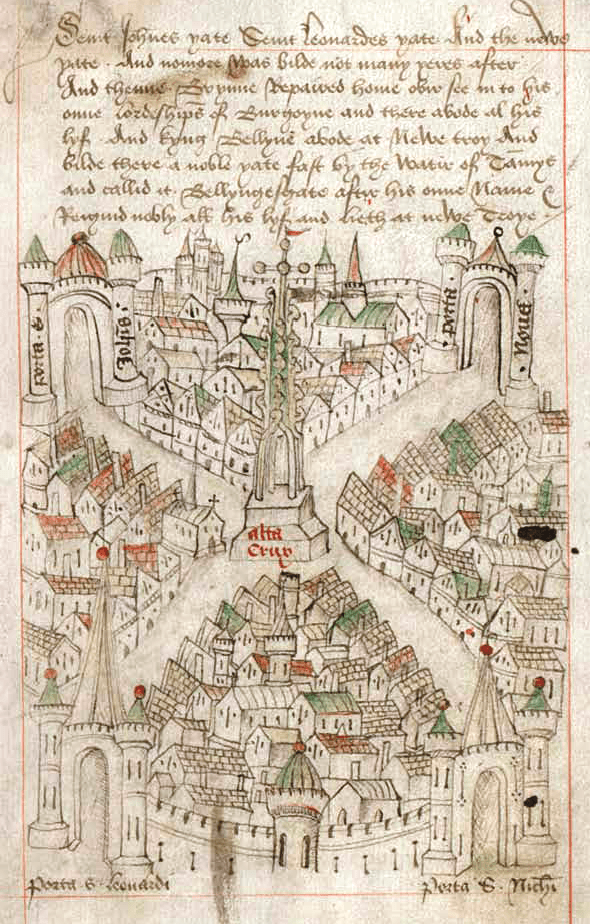 Seint Johnes yate Seint Leonardes yate And the newe
yate . And nomore was bilde not many yeres after
And thenne Brynne Repaired home ovir see in to his
onne lordeships of Burgoyne and there abode al his
lyf . And kyng Bellyne abode at Newe troy And
bilde there a noble yate fast by the watir of Tamys
and callid it Bellyngesgate aftir his onne Name &
Reignid nobly all his lyf and lieth at newe Troye .
porta S.
Johis
porta
Noua
alta
Crux
Porta S. Leonardi
Porta S. Nichi